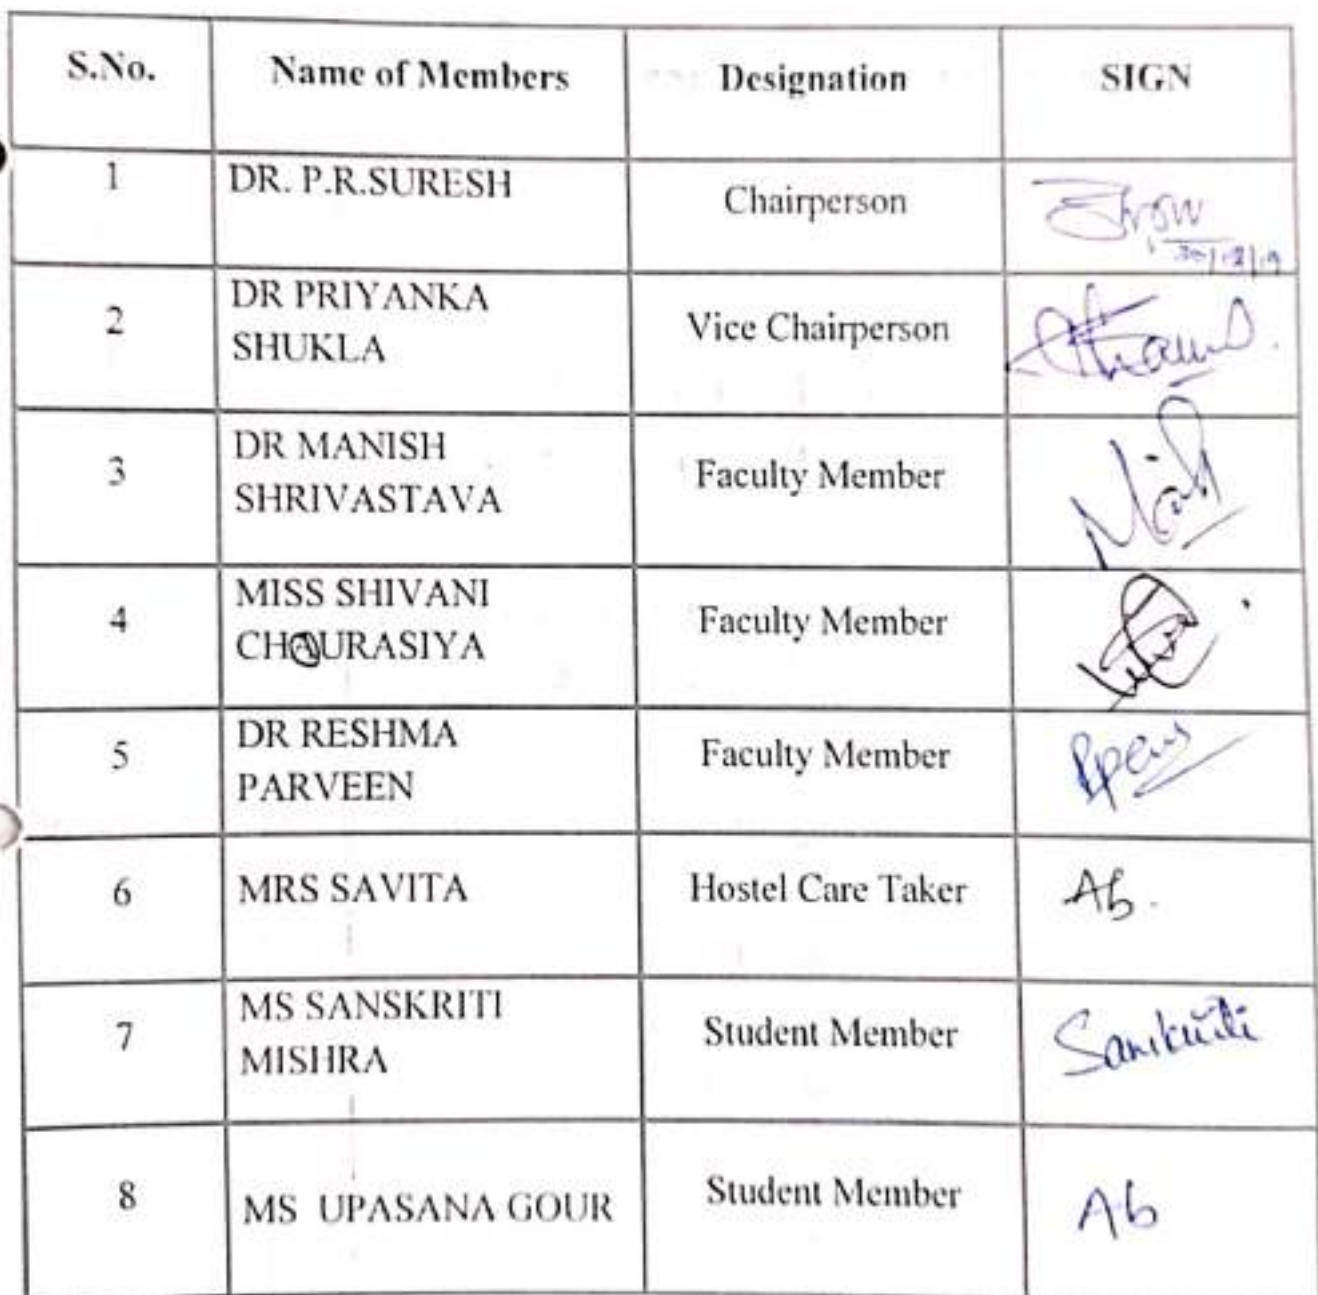 S.No. Name of Members Designation SIGN
1 DR. P.R.SURESH Chairperson
2 DR PRIYANKA
SHUKLA Vice Chairperson
3 DR MANISH
SHRIVASTAVA Faculty Member
4 MISS SHIVANI
CHAURASIYA Faculty Member
5 DR RESHMA
PARVEEN Faculty Member
6 MRS SAVITA Hostel Care Taker Ab.
7 MS SANSKRITI
MISHRA Student Member Sanskriti
8 MS UPASANA GOUR Student Member Ab